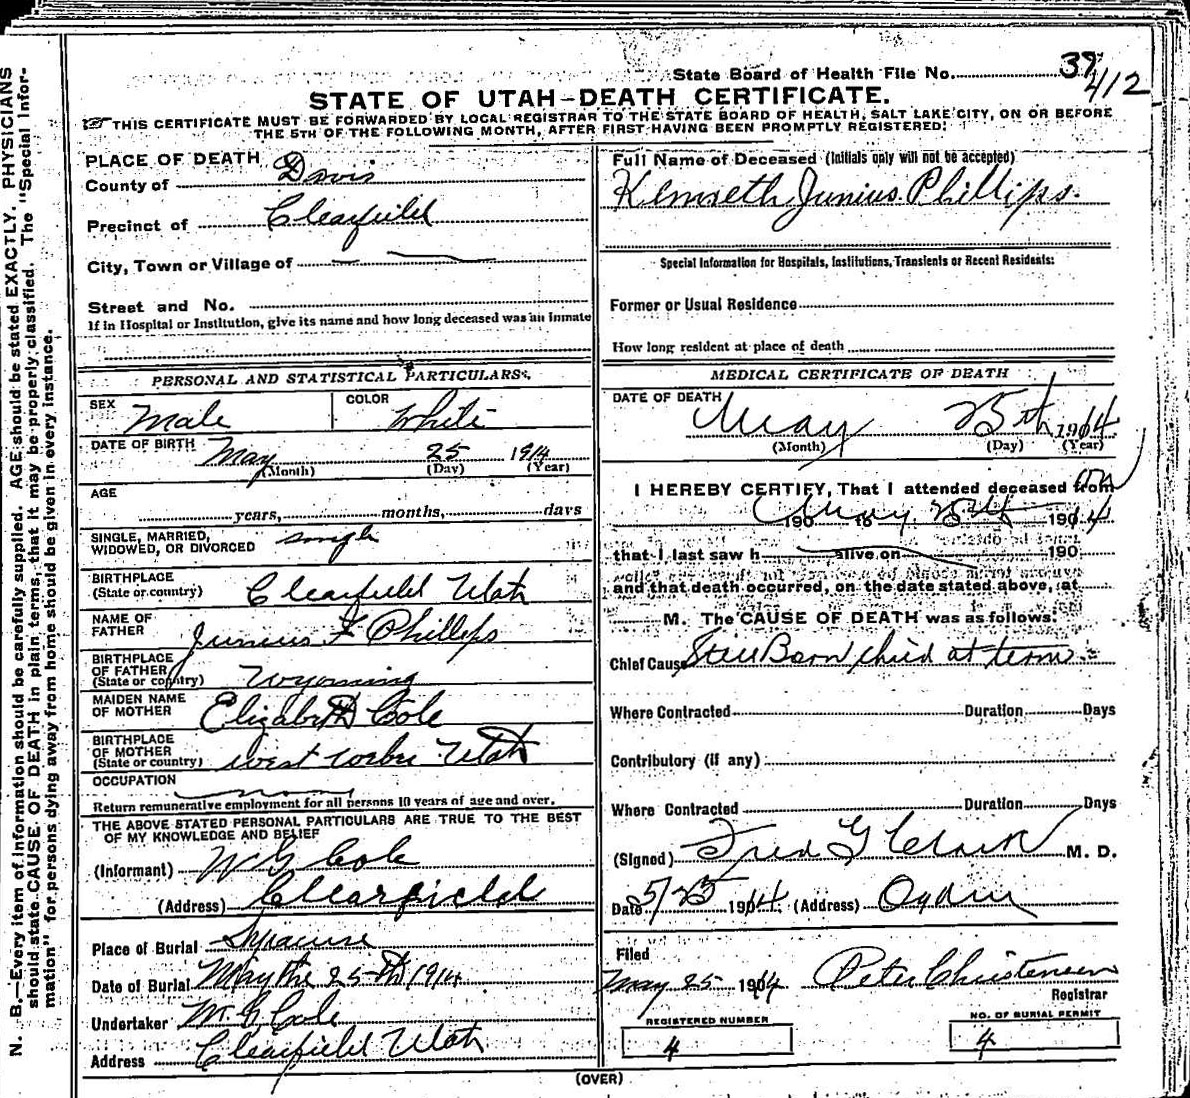 State Board of Health File No. 39
412
STATE OF UTAH–DEATH CERTIFICATE.
THIS CERTIFICATE MUST BE FORWARDED BY LOCAL REGISTRAR TO THE STATE BOARD OF HEALTH, SALT LAKE CITY, ON OR BEFORE
THE 5TH OF THE FOLLOWING MONTH, AFTER FIRST HAVING BEEN PROMPTLY REGISTERED:
N. B.—Every item of information should be carefully supplied. AGE should be stated EXACTLY. PHYSICIANS
should state CAUSE OF DEATH in plain terms, that it may be properly classified. The "Special Infor-
mation" for persons dying away from home should be given in every instance.
PLACE OF DEATH
County of Davis
Precinct of Clearfield
City, Town or Village of
Street and No.
If in Hospital or Institution, give its name and how long deceased was an inmate
PERSONAL AND STATISTICAL PARTICULARS.
SEX Male
COLOR White
DATE OF BIRTH May 25 1914
(Month) (Day) (Year)
AGE
years, months, days
SINGLE, MARRIED,
WIDOWED, OR DIVORCED single
BIRTHPLACE
(State or country) Clearfield Utah
NAME OF
FATHER Junius F Phillips
BIRTHPLACE
OF FATHER
(State or country) Wyoming
MAIDEN NAME
OF MOTHER Elizabeth Cole
BIRTHPLACE
OF MOTHER
(State or country) West Weber Utah
OCCUPATION
Return remunerative employment for all persons 10 years of age and over.
THE ABOVE STATED PERSONAL PARTICULARS ARE TRUE TO THE BEST
OF MY KNOWLEDGE AND BELIEF
(Informant) W G Cole
(Address) Clearfield
Place of Burial Syracuse
Date of Burial May the 25th 1914
Undertaker W. G Cole
Address Clearfield Utah
Full Name of Deceased (Initials only will not be accepted)
Kenneth Junius Phillips.
Special Information for Hospitals, Institutions, Transients or Recent Residents:
Former or Usual Residence
How long resident at place of death
MEDICAL CERTIFICATE OF DEATH
DATE OF DEATH
May 25th 1914
(Month) (Day) (Year)
I HEREBY CERTIFY, That I attended deceased from on
May 25th 190 to 1914
that I last saw h alive on 190
and that death occurred, on the date stated above, at
M. The CAUSE OF DEATH was as follows:
Chief Cause Still Born child at term
Where Contracted Duration Days
Contributory (if any)
Where Contracted Duration Days
(Signed) Fred G Clark M. D.
Date 5/25 1914 (Address) Ogden
Filed
May 25 1914 Peter Christensen
Registrar
REGISTERED NUMBER
4
NO. OF BURIAL PERMIT
4
(OVER)